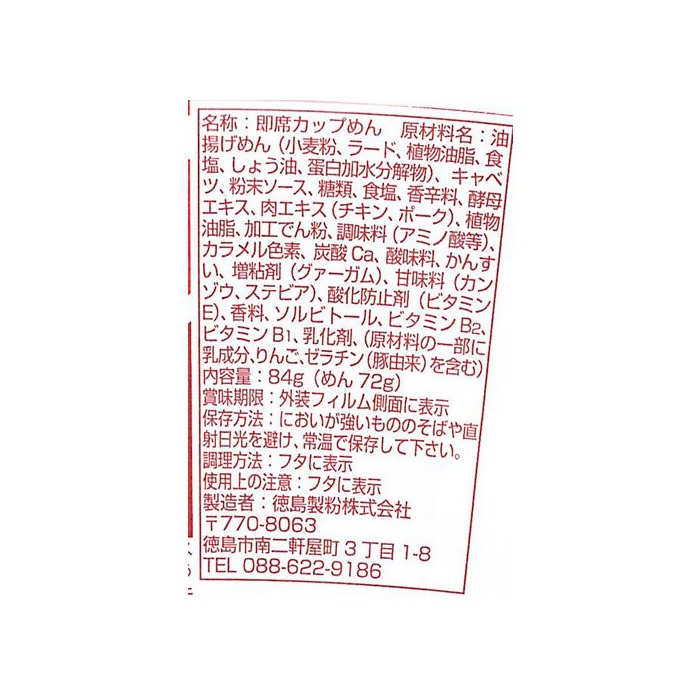 名称：即席カップめん　原材料名：油
揚げめん（小麦粉、ラード、植物油脂、食
塩、しょう油、蛋白加水分解物）、キャベ
ツ、粉末ソース、糖類、食塩、香辛料、酵母
エキス、肉エキス（チキン、ポーク）、植物
油脂、加工でん粉、調味料（アミノ酸等）、
カラメル色素、炭酸Ca、酸味料、かんす
い、増粘剤（グァーガム）、甘味料（カン
ゾウ、ステビア）、酸化防止剤（ビタミン
E）、香料、ソルビトール、ビタミンB2、
ビタミンB1、乳化剤、（原材料の一部に
乳成分、りんご、ゼラチン（豚由来）を含む）
内容量：84g（めん 72g）
賞味期限：外装フィルム側面に表示
保存方法：においが強いもののそばや直
射日光を避け、常温で保存して下さい。
調理方法：フタに表示
使用上の注意：フタに表示
製造者：徳島製粉株式会社
〒770-8063
徳島市南二軒屋町3丁目1-8
TEL 088-622-9186